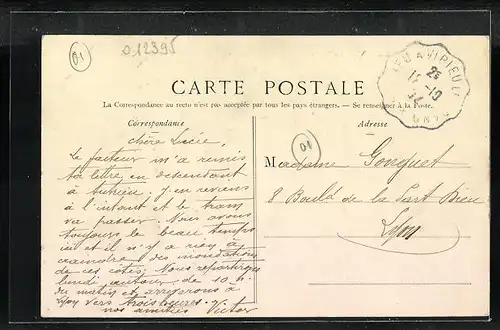 01
012395
CARTE POSTALE
La Correspondance au recto n'est pas acceptée par tous les pays étrangers. — Se renseigner à la Poste.
Correspondance
Adresse
01
chère Lucie,
Le facteur m'a remis
ta lettre, en descendant
à J'en reviens
à l'instant et le tram
va passer. Nous avons
toujours le beau temps
ici et il n'y a rien à
craindre des inondations
de ces côtés. Nous repartirons
lundi autour de 10 h.
du matin et arriverons à
Lyon vers trois heures.
nos amitiés Victor
Madame Gonguet
8 Bould de la Part Dieu
Lyon